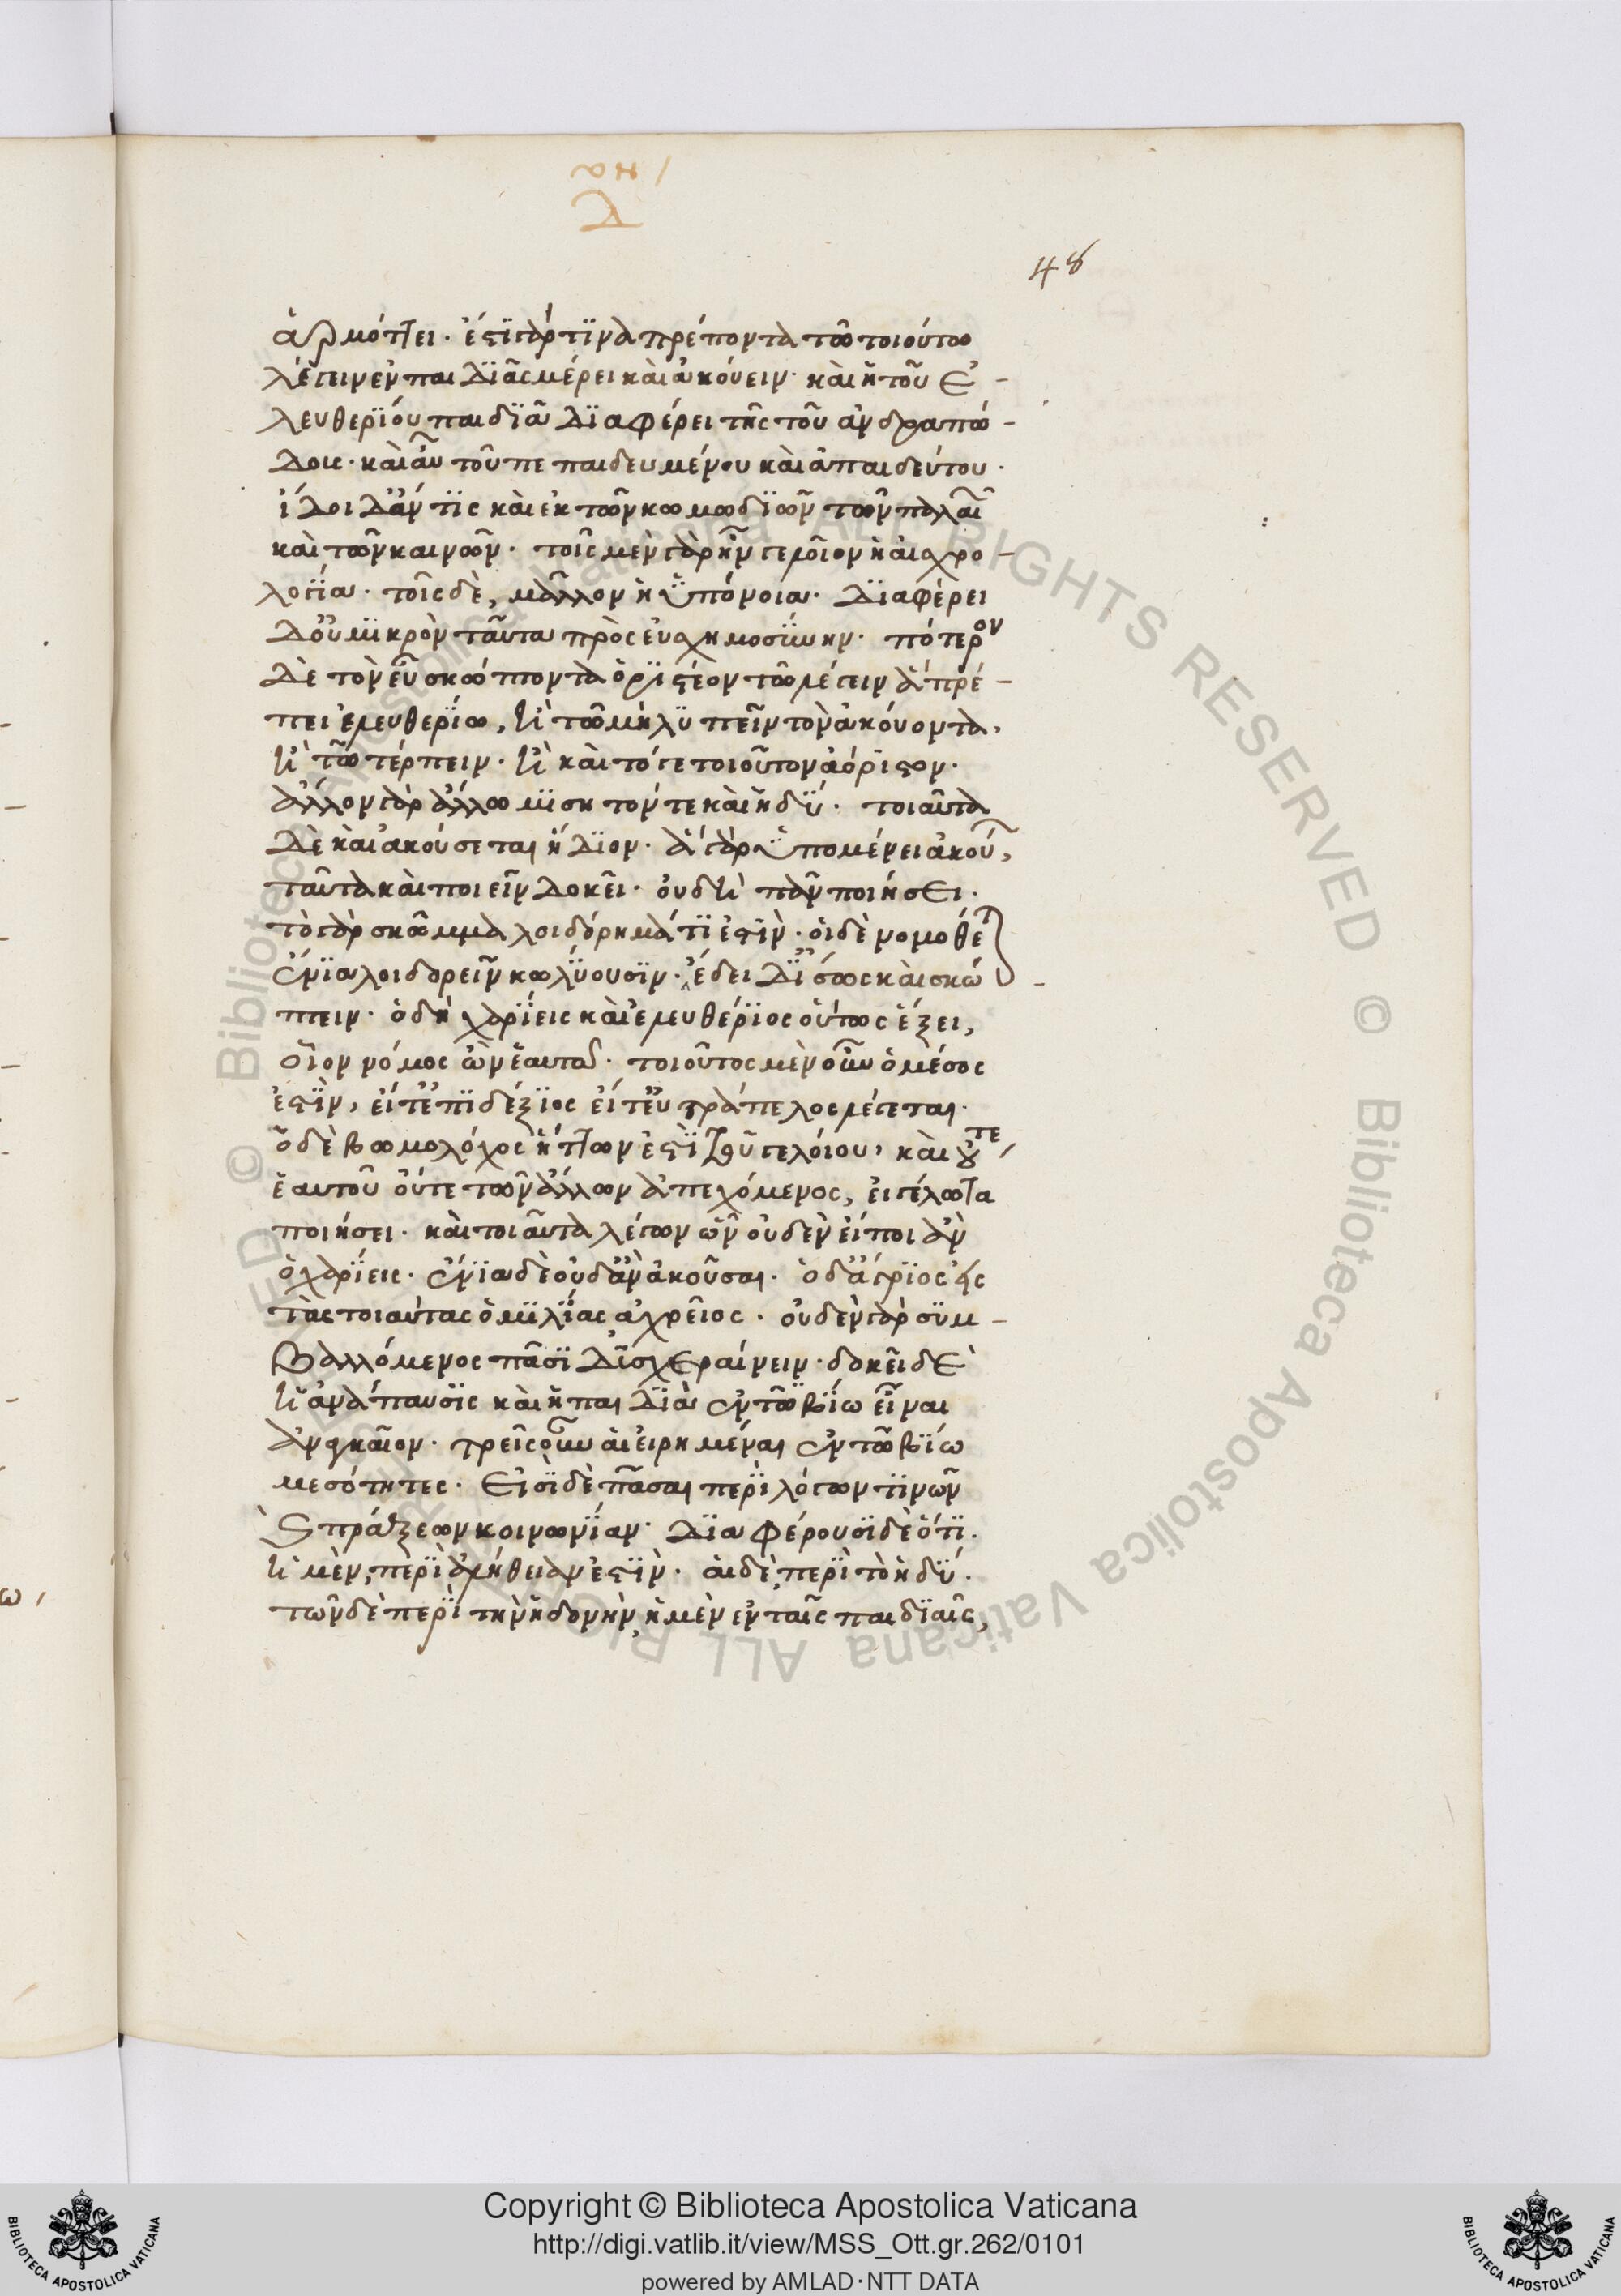 ηθι
Δ
48
ἁρμόττει· ἔστι γάρ τινα πρέποντα τῶ τοιούτω
λέγειν ἐν παιδιᾶς μέρει καὶ ἀκούειν· καὶ ἡ τοῦ ἐ-
λευθερίου παιδιὰ διαφέρει τῆς τοῦ ἀνδραπω-
δοις· καὶ αὖ τοῦ πεπαιδευμένου καὶ ἀπαιδεύτου·
ἴδοι δ' ἄν τις καὶ ἐκ τῶν κωμωδιῶν τῶν παλαι
καὶ τῶν καινῶν· τοῖς μὲν γὰρ ἦν γελοῖον ἡ αἰσχρο-
λογία· τοῖς δὲ, μᾶλλον ἡ ὑπόνοια· διαφέρει
δ' οὐ μικρὸν ταῦτα πρὸς εὐσχημοσύνην· πότερον
δὲ τὸν εὖ σκώπτοντα ὁριστέον τῶ λέγειν ἃ πρέ-
πει ἐλευθερίω, ἢ τῶ μὴ λυπεῖν τὸν ἀκούοντα,
ἢ τῶ τέρπειν· ἢ καὶ τό γε τοιοῦτον ἀόριστον·
ἄλλον γὰρ ἄλλω μισητόν τε καὶ ἡδύ· τοιαῦτα
δὲ καὶ ἀκούσεται ἥδιον· ἃ γὰρ ὑπομένει ἀκού,
ταῦτα καὶ ποιεῖν δοκεῖ· οὐ δὴ πᾶν ποιήσει·
τὸ γὰρ σκῶμμα λοιδόρημά τι ἐστίν· οἱ δὲ νομοθέ
ἔνια λοιδορεῖν κωλύουσιν· ἔδει δ' ἴσως καὶ σκώ
πτειν· ὁ δὴ χαρίεις καὶ ἐλευθέριος οὕτως ἕξει,
οἷον νόμος ὢν ἑαυτῶ· τοιοῦτος μὲν οὖν ὁ μέσος
ἐστίν, εἴτ' ἐπιδέξιος εἴτ' εὐτράπελος λέγεται·
ὁ δὲ βωμολόχος ἥττων ἐστὶ τοῦ γελοίου, καὶ οὔτε
ἑαυτοῦ οὔτε τῶν ἄλλων ἀπεχόμενος, εἰ γέλωτα
ποιήσει· καὶ τοιαῦτα λέγων ὧν οὐδὲν εἴποι ἂν
ὁ χαρίεις· ἔνια δὲ οὐδ' ἂν ἀκοῦσαι· ὁ δ' ἄγριος εἰς
τὰς τοιαύτας ὁμιλίας ἀχρεῖος· οὐδὲν γὰρ συμ-
βαλλόμενος πᾶσι δυσχεραίνειν· δοκεῖ δὲ
ἡ ἀνάπαυσις καὶ ἡ παιδιὰ ἐν τῶ βίω εἶναι
ἀναγκαῖον· τρεῖς οὖν αἱ εἰρημέναι ἐν τῶ βίω
μεσότητες· εἰσὶ δὲ πᾶσαι περὶ λόγων τινῶν
καὶ πράξεων κοινωνίαν· διαφέρουσι δὲ ὅτι·
ἡ μὲν, περὶ ἀλήθειάν ἐστιν· αἱ δὲ, περὶ τὸ ἡδύ·
τῶν δὲ περὶ τὴν ἡδονὴν, ἡ μὲν ἐν ταῖς παιδιαῖς,
Copyright © Biblioteca Apostolica Vaticana
http://digi.vatlib.it/view/MSS_Ott.gr.262/0101
powered by AMLAD·NTT DATA